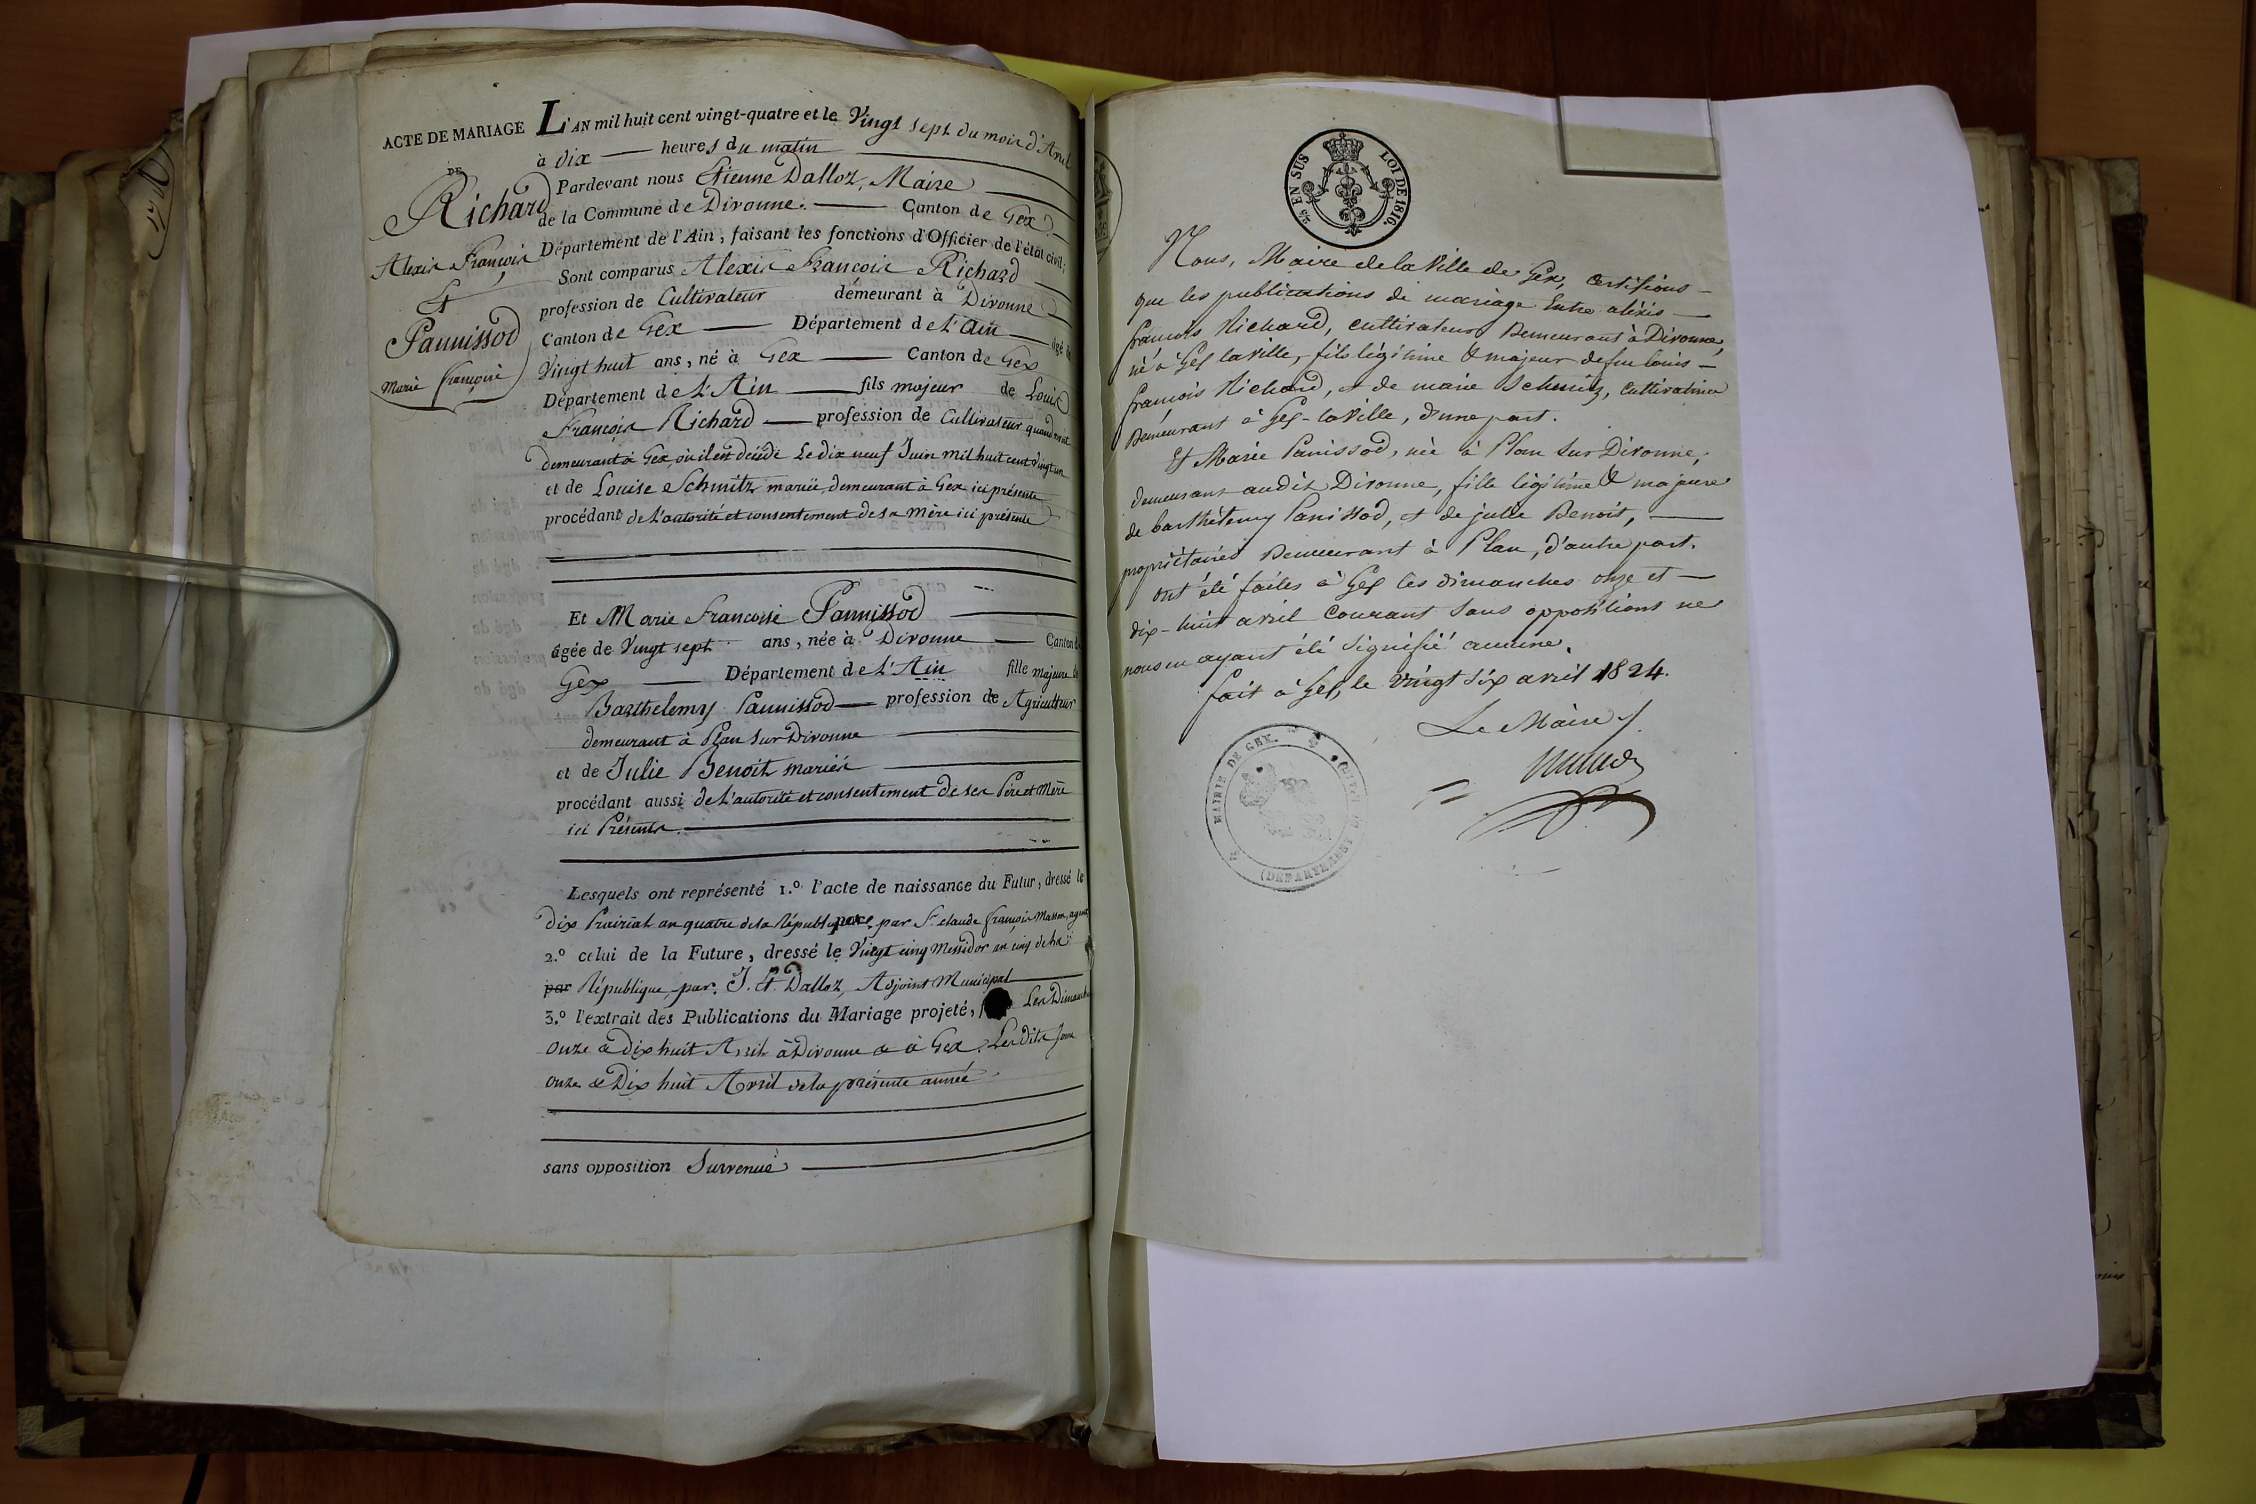 ACTE DE MARIAGE
DE
Richard
Alexis François
Et
Pannissod
Marie françoise
L'AN mil huit cent vingt-quatre et le Vingt sept du mois d'Avril
à dix heures du matin
Pardevant nous Etienne Dalloz, Maire
de la Commune de Divonne. Canton de Gex
Département de l'Ain, faisant les fonctions d'Officier de l'état civil;
Sont comparus Alexis François Richard
profession de Cultivateur démeurant à Divonne
Canton de Gex Département de L'Ain agé de
Vingt huit ans, né à Gex Canton de Gex
Département de L'Ain fils majeur de Louis
François Richard profession de Cultivateur quand vivait
demeurant à Gex, où il est décédé Le dix neuf Juin mil huit cent vingt un
et de Louise Schmitz mariée, demeurant à Gex ici présente
procédant de L'autorité et consentement de sa mère ici présente
Et Marie Francoise Pannissod
âgée de Vingt sept ans, née à Divonne Canton de
Gex Département de L'Ain fille majeure de
Barthelemy Pannissod profession de Agriculteur
demeurant à Plan sur Divonne
et de Julie Benoit mariés
procédant aussi de L'autorité et consentement de ses Père et Mère
ici Présents.
Lesquels ont représenté 1.º l'acte de naissance du Futur, dressé le
Dix Prairial an quatre de la République par Sr. claude françois Masson, agent
2.º celui de la Future, dressé le Vingt cinq Messidor an cinq de la
par République, par J. E. Dalloz, Adjoint Municipal
3.º l'extrait des Publications du Mariage projeté, Les Dimanches
onze & dix huit Avril à Divonne & à Gex. Les dits Jours
onze & Dix huit Avril de la présente année
sans opposition Survenue
25 EN SUS LOI DE 1816.
Nous, Maire de la Ville de Gex, certifions
que les publications de mariage Entre aléxis
françois Richard, cultivateur Demeurant à Divonne,
né à Gex la ville, fils légitime & majeur de feu louis
françois Richard, et de marie Schmitz, cultivatrice
Demeurant à Gex-la Ville, d'une part.
Et Marie Panissod, née à Plan Sur Divonne,
demeurant audit Divonne, fille légitime & majeure
de barthélemy Panissod, et de julie Benoit,
propriétaires Demeurant à Plan, d'autre part.
ont été faites à Gex les dimanches onze et
dix-huit avril courant sans oppositions ne
nous en ayant été signifié aucune.
fait à Gex, le vingt six avril 1824.
Le Maire
MAIRIE DE GEX.
(DEPARTEMENT